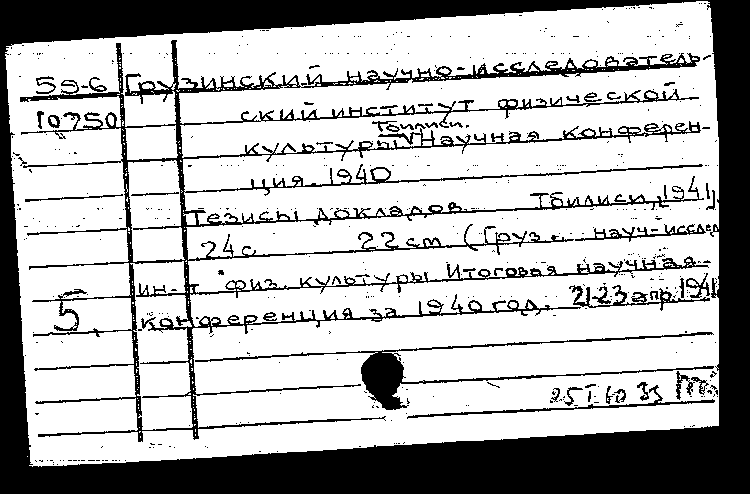 59-6 Грузинский научно-исследователь-
10750 ский институт физической
Тбилиси.
культуры Научная конферен-
ция. 1940
Тезисы докладов. Тбилиси, 1941.
24 с. 22 см (Груз. науч-исслед
ин-т физ. культуры Итоговая научная
5. конференция за 1940 год. 21-23 апр. 1941
25 I 60